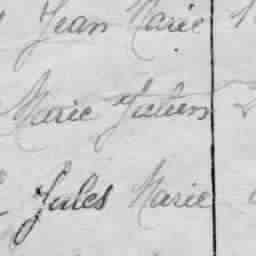 Jean Marie
Marie Julien
Jules Marie